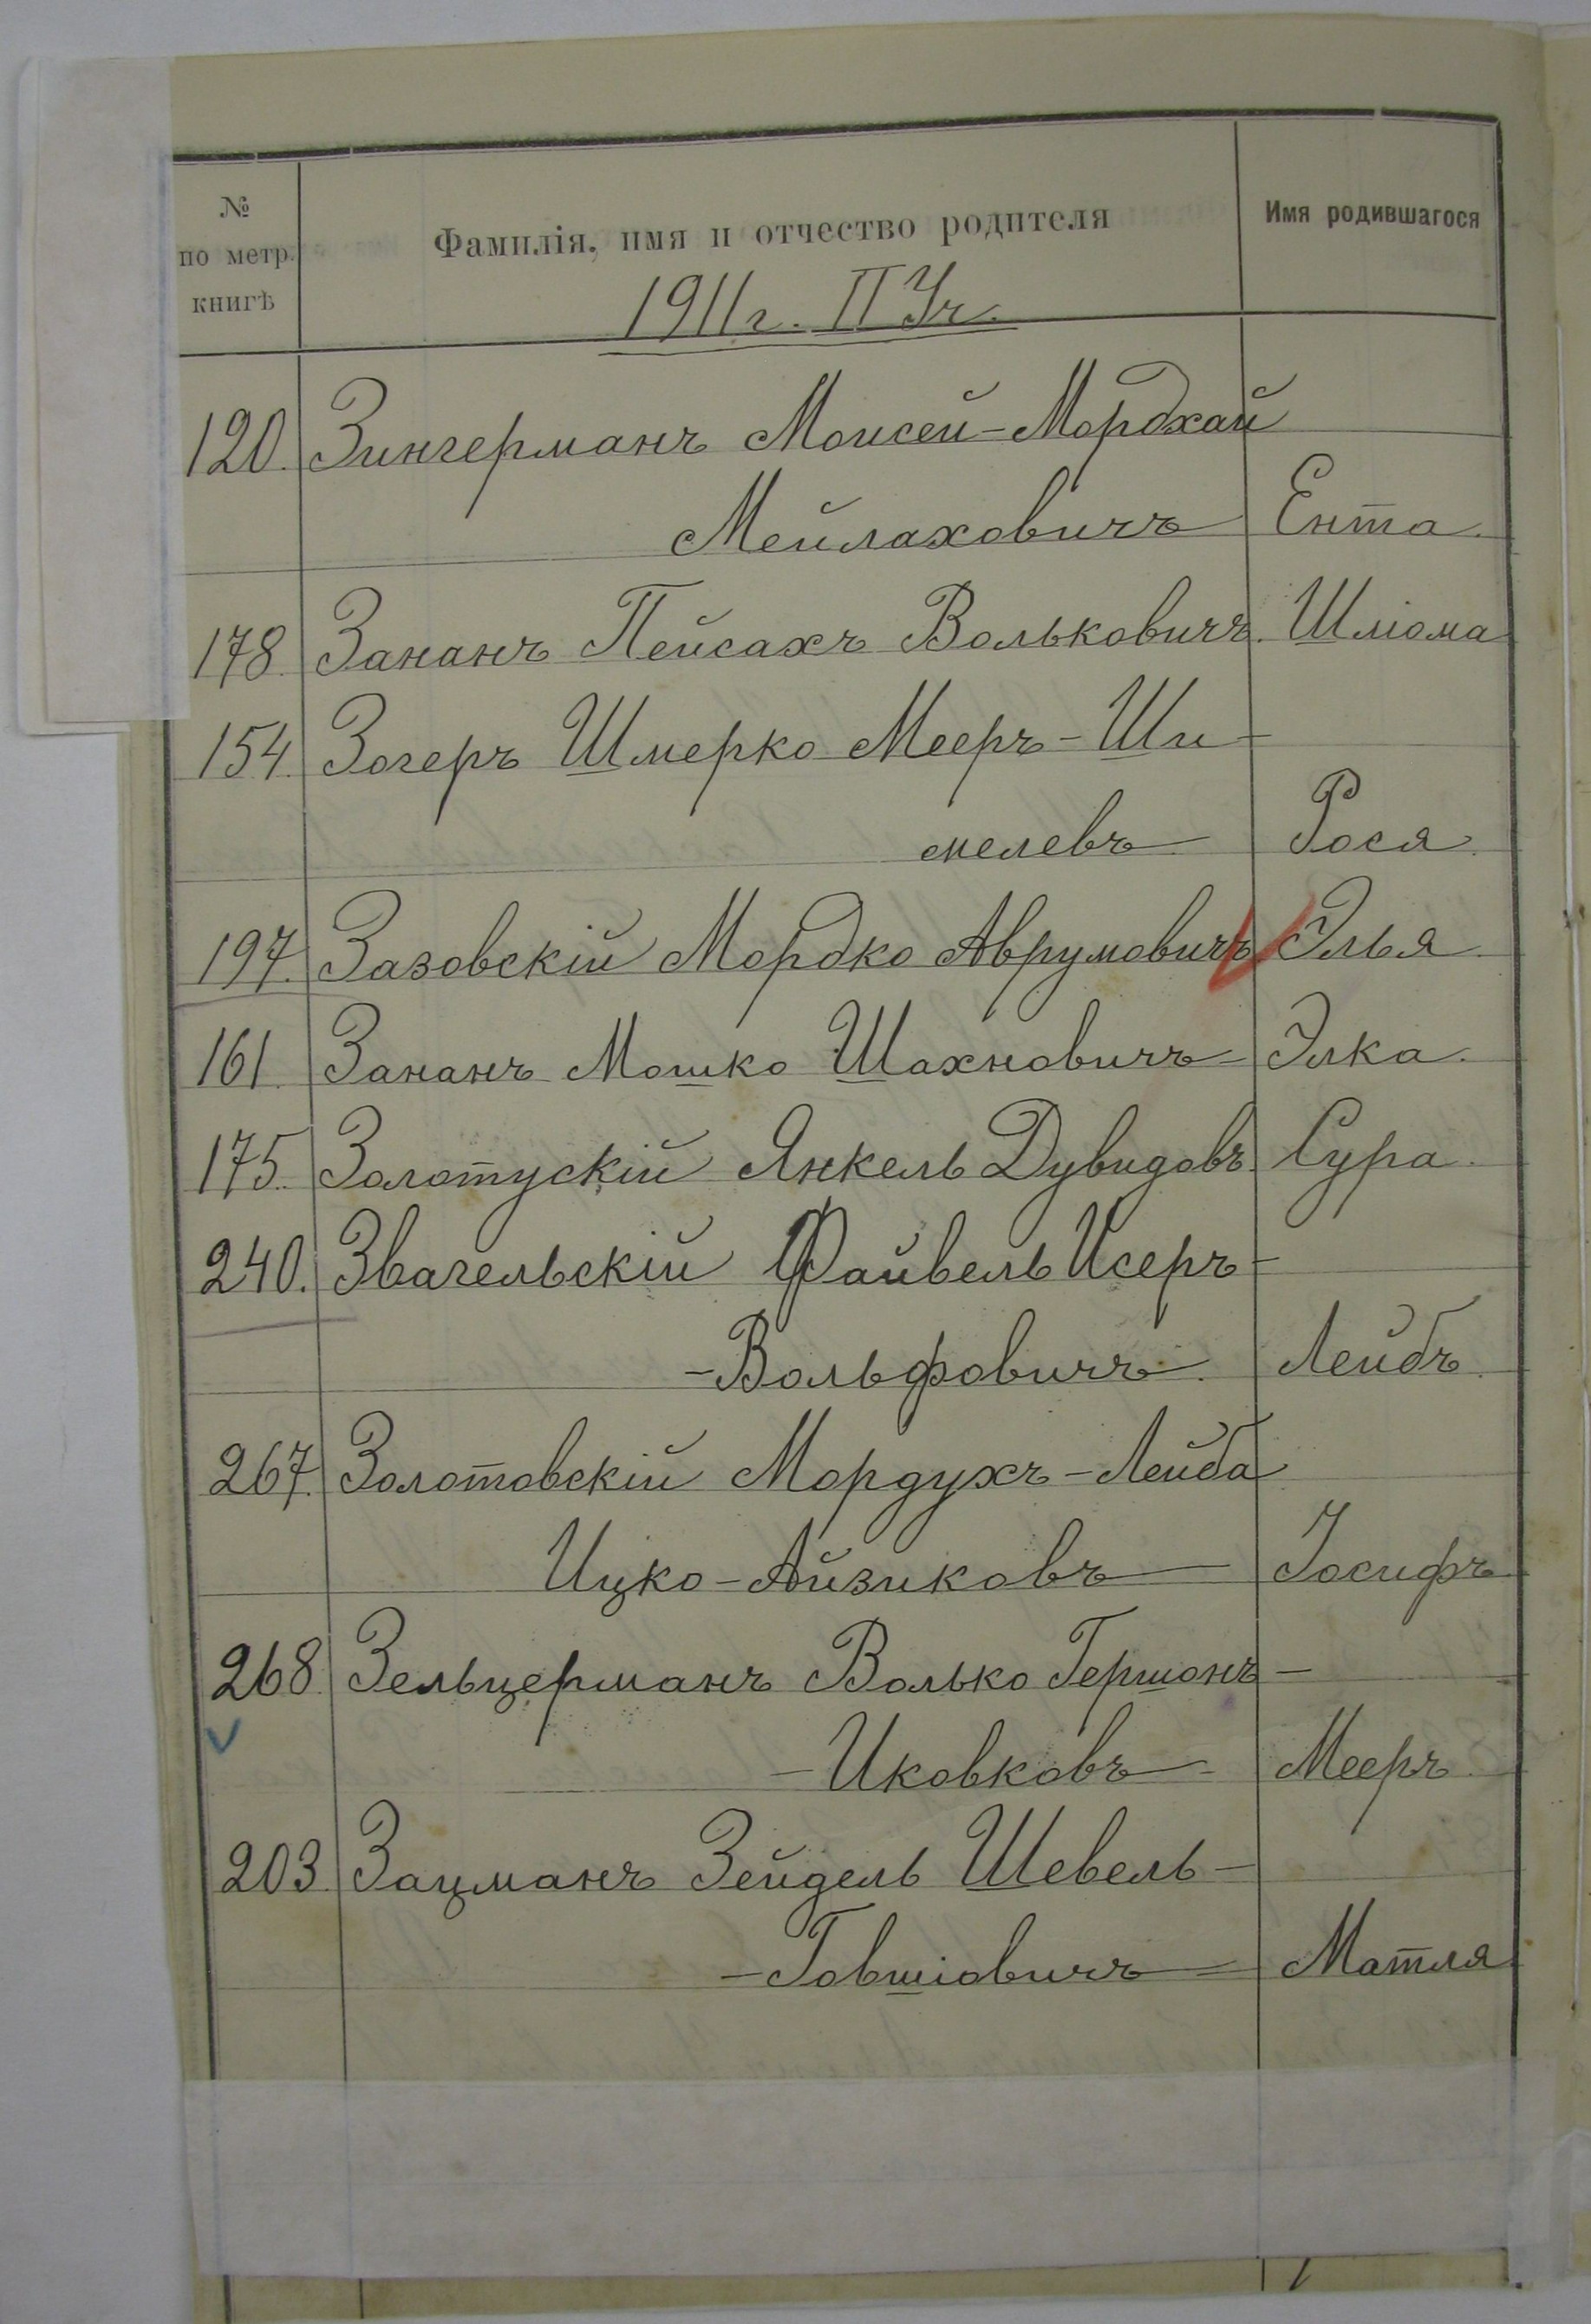 № по метр. книгѣ
Фамилія, имя и отчество родителя
Имя родившагося
1911 г. II Уч.
120. Зингерманъ Моисей-Мордхай
Мейлаховичъ Ента.
178. Зананъ Пейсахъ Вольковичъ. Шліома
154. Зогеръ Шмерко Мееръ-Ши-
мелевъ Рося.
197. Зазовскій Мордко Аврумовичъ Элья.
161. Зананъ Мошко Шахновичъ Элка.
175. Золотускій Янкель Дувидовъ. Сура.
240. Звагельскій Файвель Исеръ-
-Вольфовичъ. Лейбъ.
267. Золотовскій Мордухъ-Лейба
Ицко-Айзиковъ Іосифъ.
268. Зельцерманъ Волько Гершонъ-
-Иковковъ Мееръ.
203. Зацманъ Зейдель Шевель-
-Говшіовичъ Матля